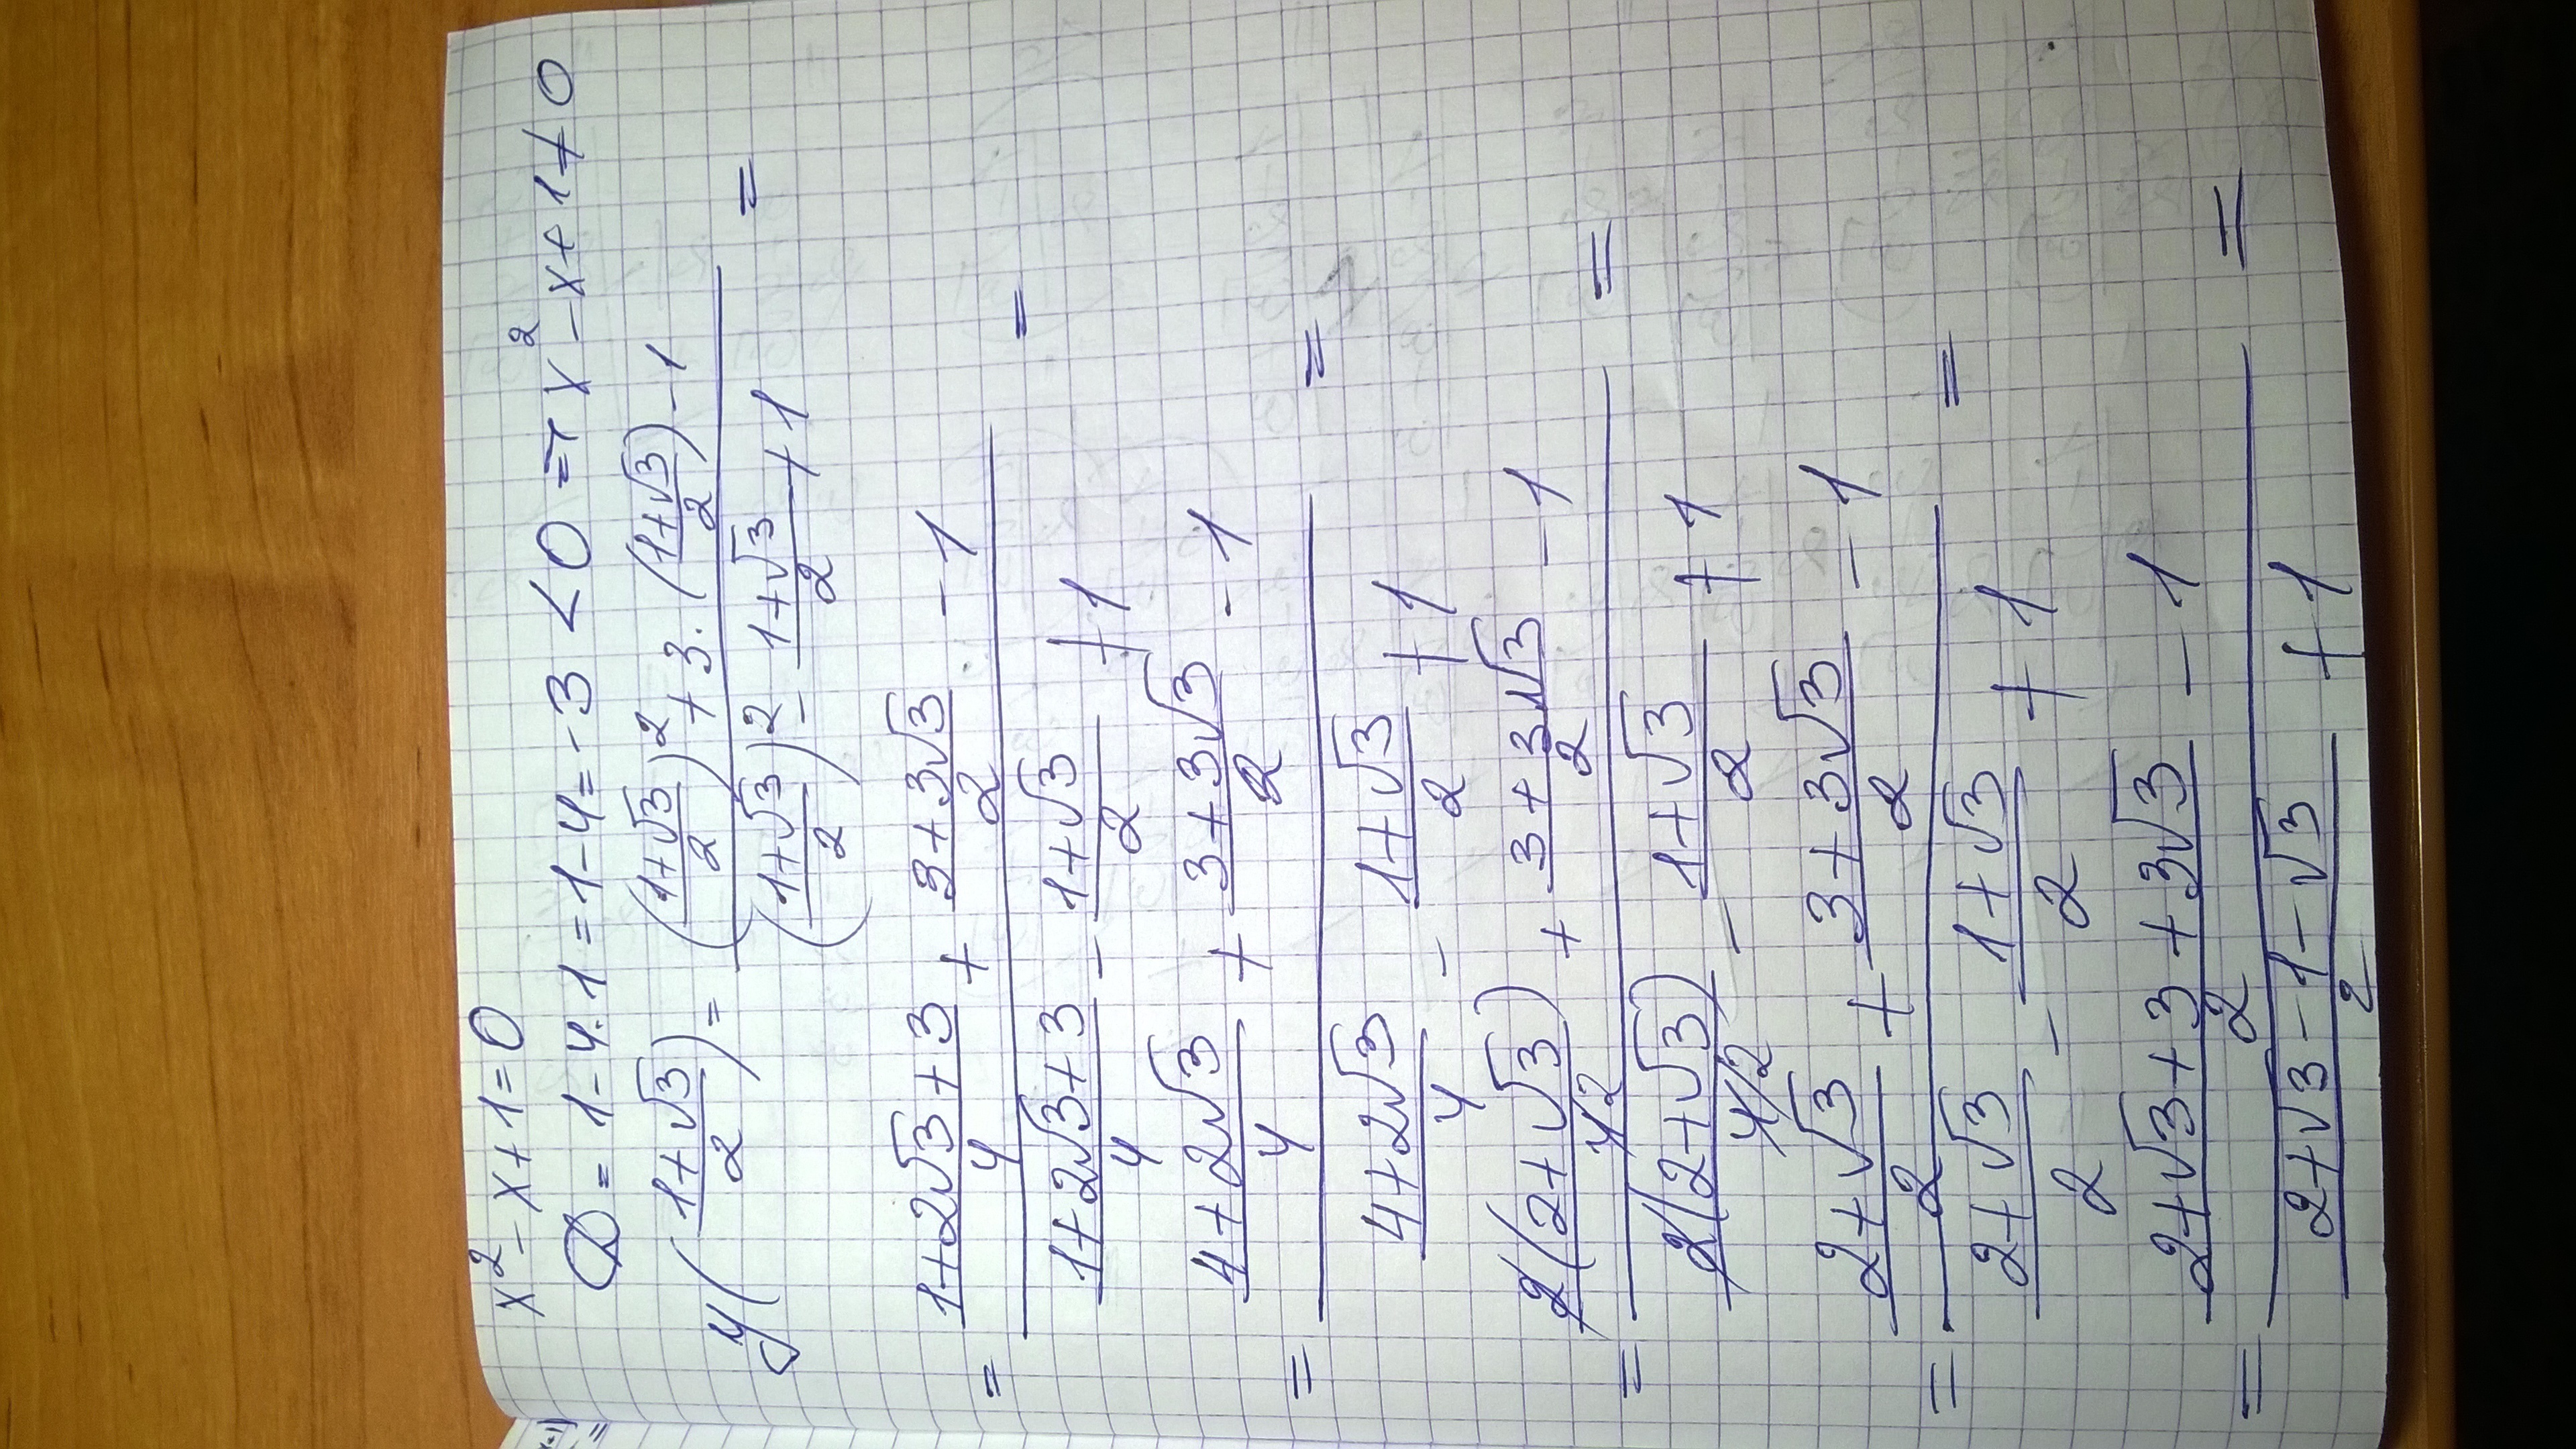 x² - x + 1 = 0
D = 1 - 4·1 = 1 - 4 = -3 < 0 => x² - x + 1 ≠ 0
y((1+√3)/2) = (((1+√3)/2)² + 3·((1+√3)/2) - 1)/(((1+√3)/2)² - (1+√3)/2 + 1) =
= ((1+2√3+3)/4 + (3+3√3)/2 - 1)/((1+2√3+3)/4 - (1+√3)/2 + 1) =
= ((4+2√3)/4 + (3+3√3)/2 - 1)/((4+2√3)/4 - (1+√3)/2 + 1) =
= (2(2+√3)/4 2 + (3+3√3)/2 - 1)/(2(2+√3)/4 2 - (1+√3)/2 + 1) =
= ((2+√3)/2 + (3+3√3)/2 - 1)/((2+√3)/2 - (1+√3)/2 + 1) =
= ((2+√3+3+3√3)/2 - 1)/((2+√3-1-√3)/2 + 1) =